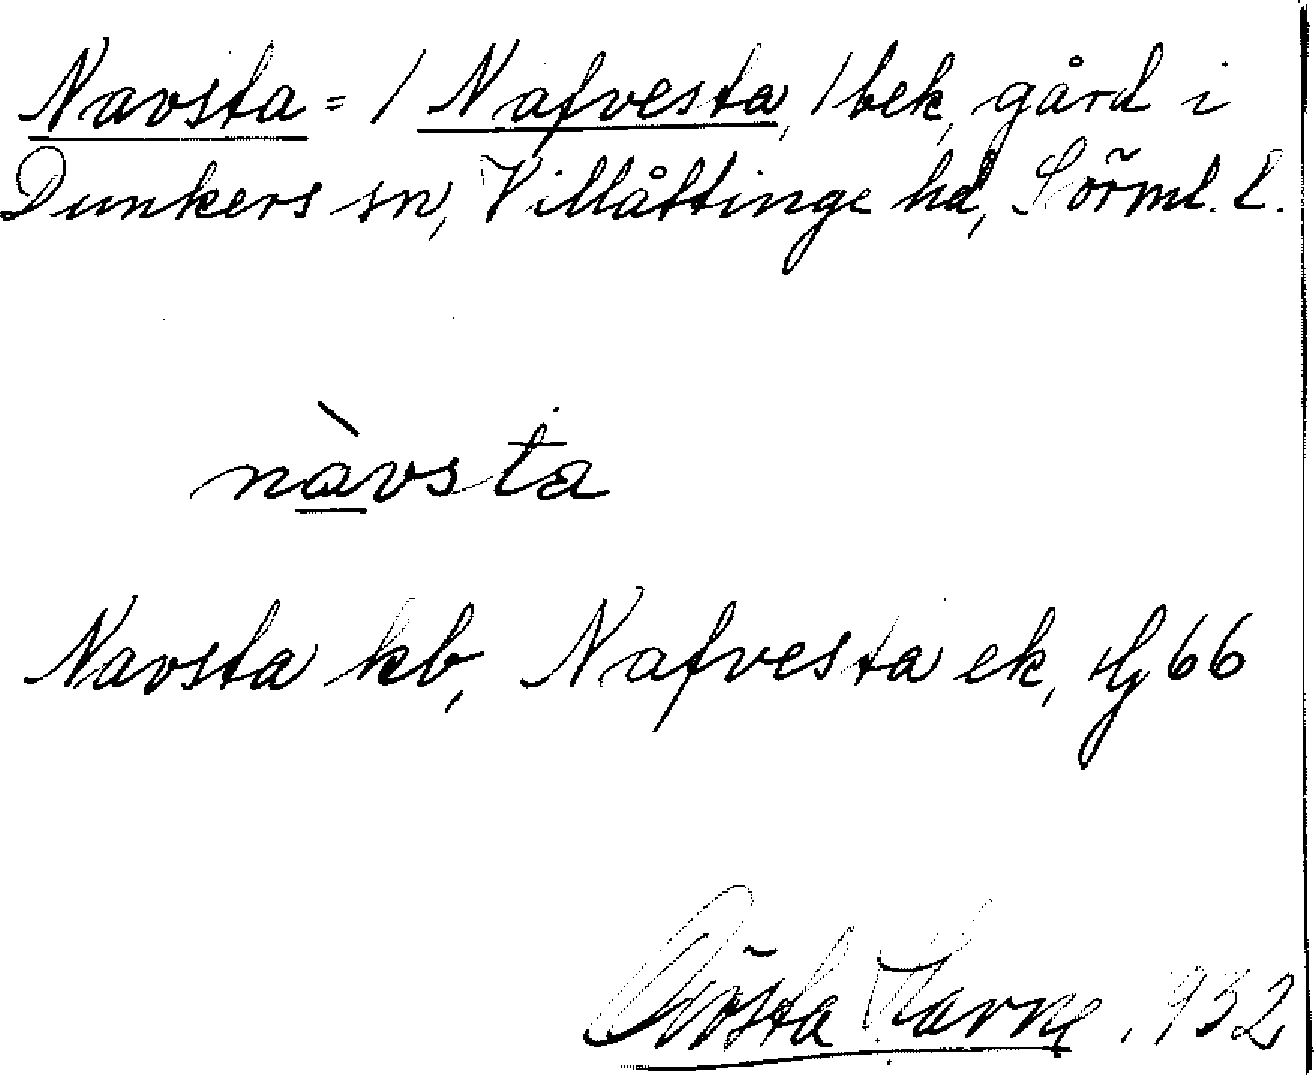 Navsta = / Nafvesta, / bek, gård i
Dunkers sn, Villåttinge hd, Sörml. l.
nàvsta
Navsta kb, Nafvesta ek, Hj 66
Gösta Harne. 932